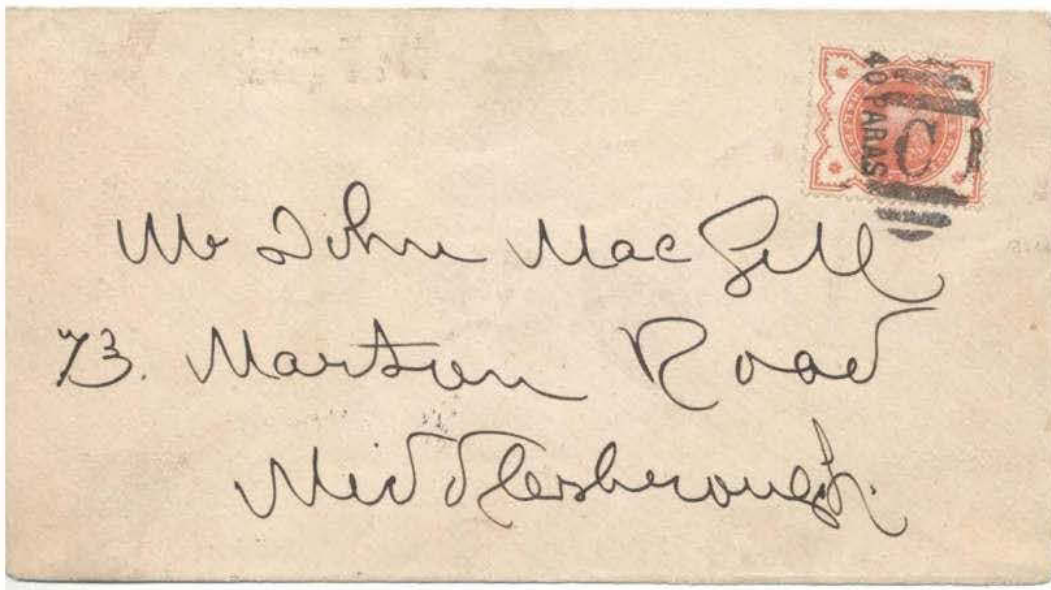 40 PARAS
C
Mr John MacGill
73. Marton Road
Middlesbrough.